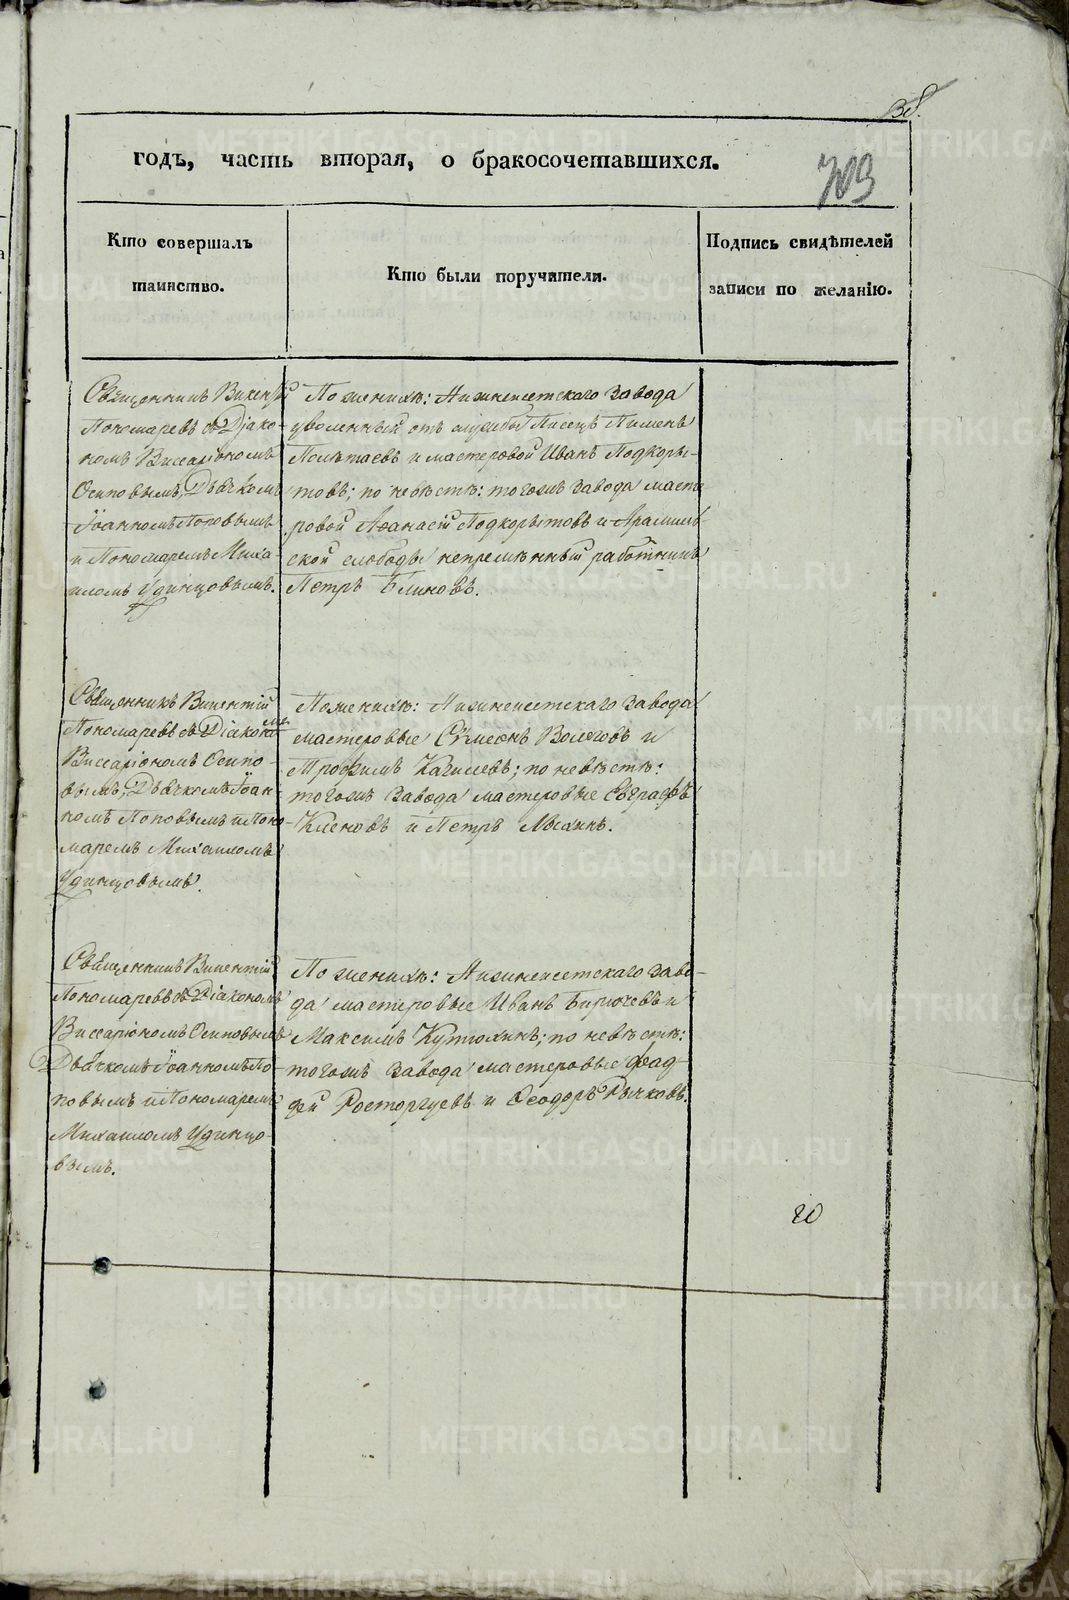 38.
годъ, часть вторая, о бракосочетавшихся.
703
Кто совершалъ
таинство.
Кто были поручители.
Подпись свидѣтелей
записи по желанію.
Священникъ Викентій
Пономаревъ съ Діако-
номъ Виссаріономъ
Осиповымъ, Дьячкомъ
Іоанномъ Поповымъ
и Пономаремъ Миха-
иломъ Удинцовымъ.
По женихѣ: Нижнеисетскаго завода
уволенный отъ службы Писецъ Пименъ
Полѣтаевъ и мастеровой Иванъ Подкоры-
товъ; по невѣстѣ: тогожъ завода масте
ровой Аѳанасій Подкорытовъ и Арамиль
ской слободы непремѣнный работникъ
Петръ Блиновъ.
Священникъ Викентій
Пономаревъ съ Діакономъ
Виссаріономъ Осипо-
вымъ, Дьячкомъ Іоан-
номъ Поповымъ и Поно-
маремъ Михаиломъ
Удинцовымъ.
По женихѣ: Нижнеисетскаго завода
мастеровые Сѵмеонъ Вологовъ и
Трофимъ Качилевъ; по невѣстѣ:
тогожъ завода мастеровые Евграфъ
Кленовъ и Петръ
Священникъ Викентій
Пономаревъ съ Діакономъ
Виссаріономъ Осиповымъ
Дьячкомъ Іоанномъ По-
повымъ и Пономаремъ
Михаиломъ Удинцо-
вымъ.
По женихѣ: Нижнеисетскаго заво-
да мастеровые Иванъ Бирючевъ и
Максимъ Кутюхинъ; по невѣстѣ:
тогожъ завода мастеровые Фад-
дей Расторгуевъ и Ѳеодоръ Рычковъ.
20
METRIKI.GASO-URAL.RU